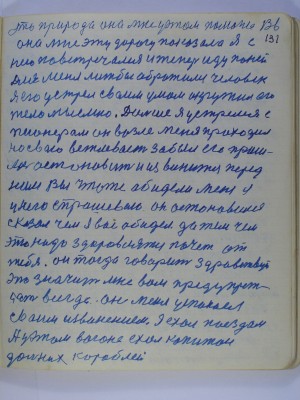 это природа она мне у этом помочи ВЬ
131
она мне эту дорогу показала Я с
нею повстречался и теперь иду по ней
для меня люди обратили человек
Я его устрел своим умом окружил его
тело мыслию. Дальше Я устрелся с
пионерам он возле меня проходил
но свою вежливость забыл его приш-
лось остановить и извинится перед
ним Вы что же обидели меня у
него спрашеваю он остоновился
сказал чем Я вас обидел да тем чем
это надо здоровсятьи почет от
тебя. он тогда говорит здравствуй
это значит мне вам предупреж-
дать всегда. он меня упокаев
своим извинением. Я ехал поездам
А у этом вагоне ехал капитан
дальних кораблей